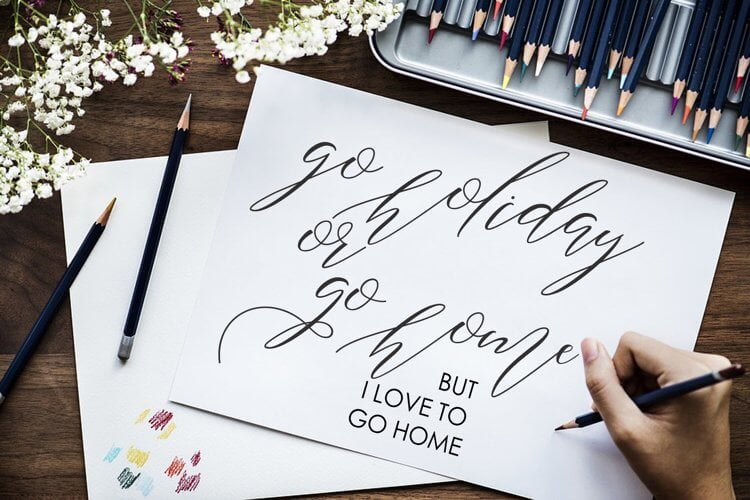 go holiday
or
go home
BUT
I LOVE TO
GO HOME